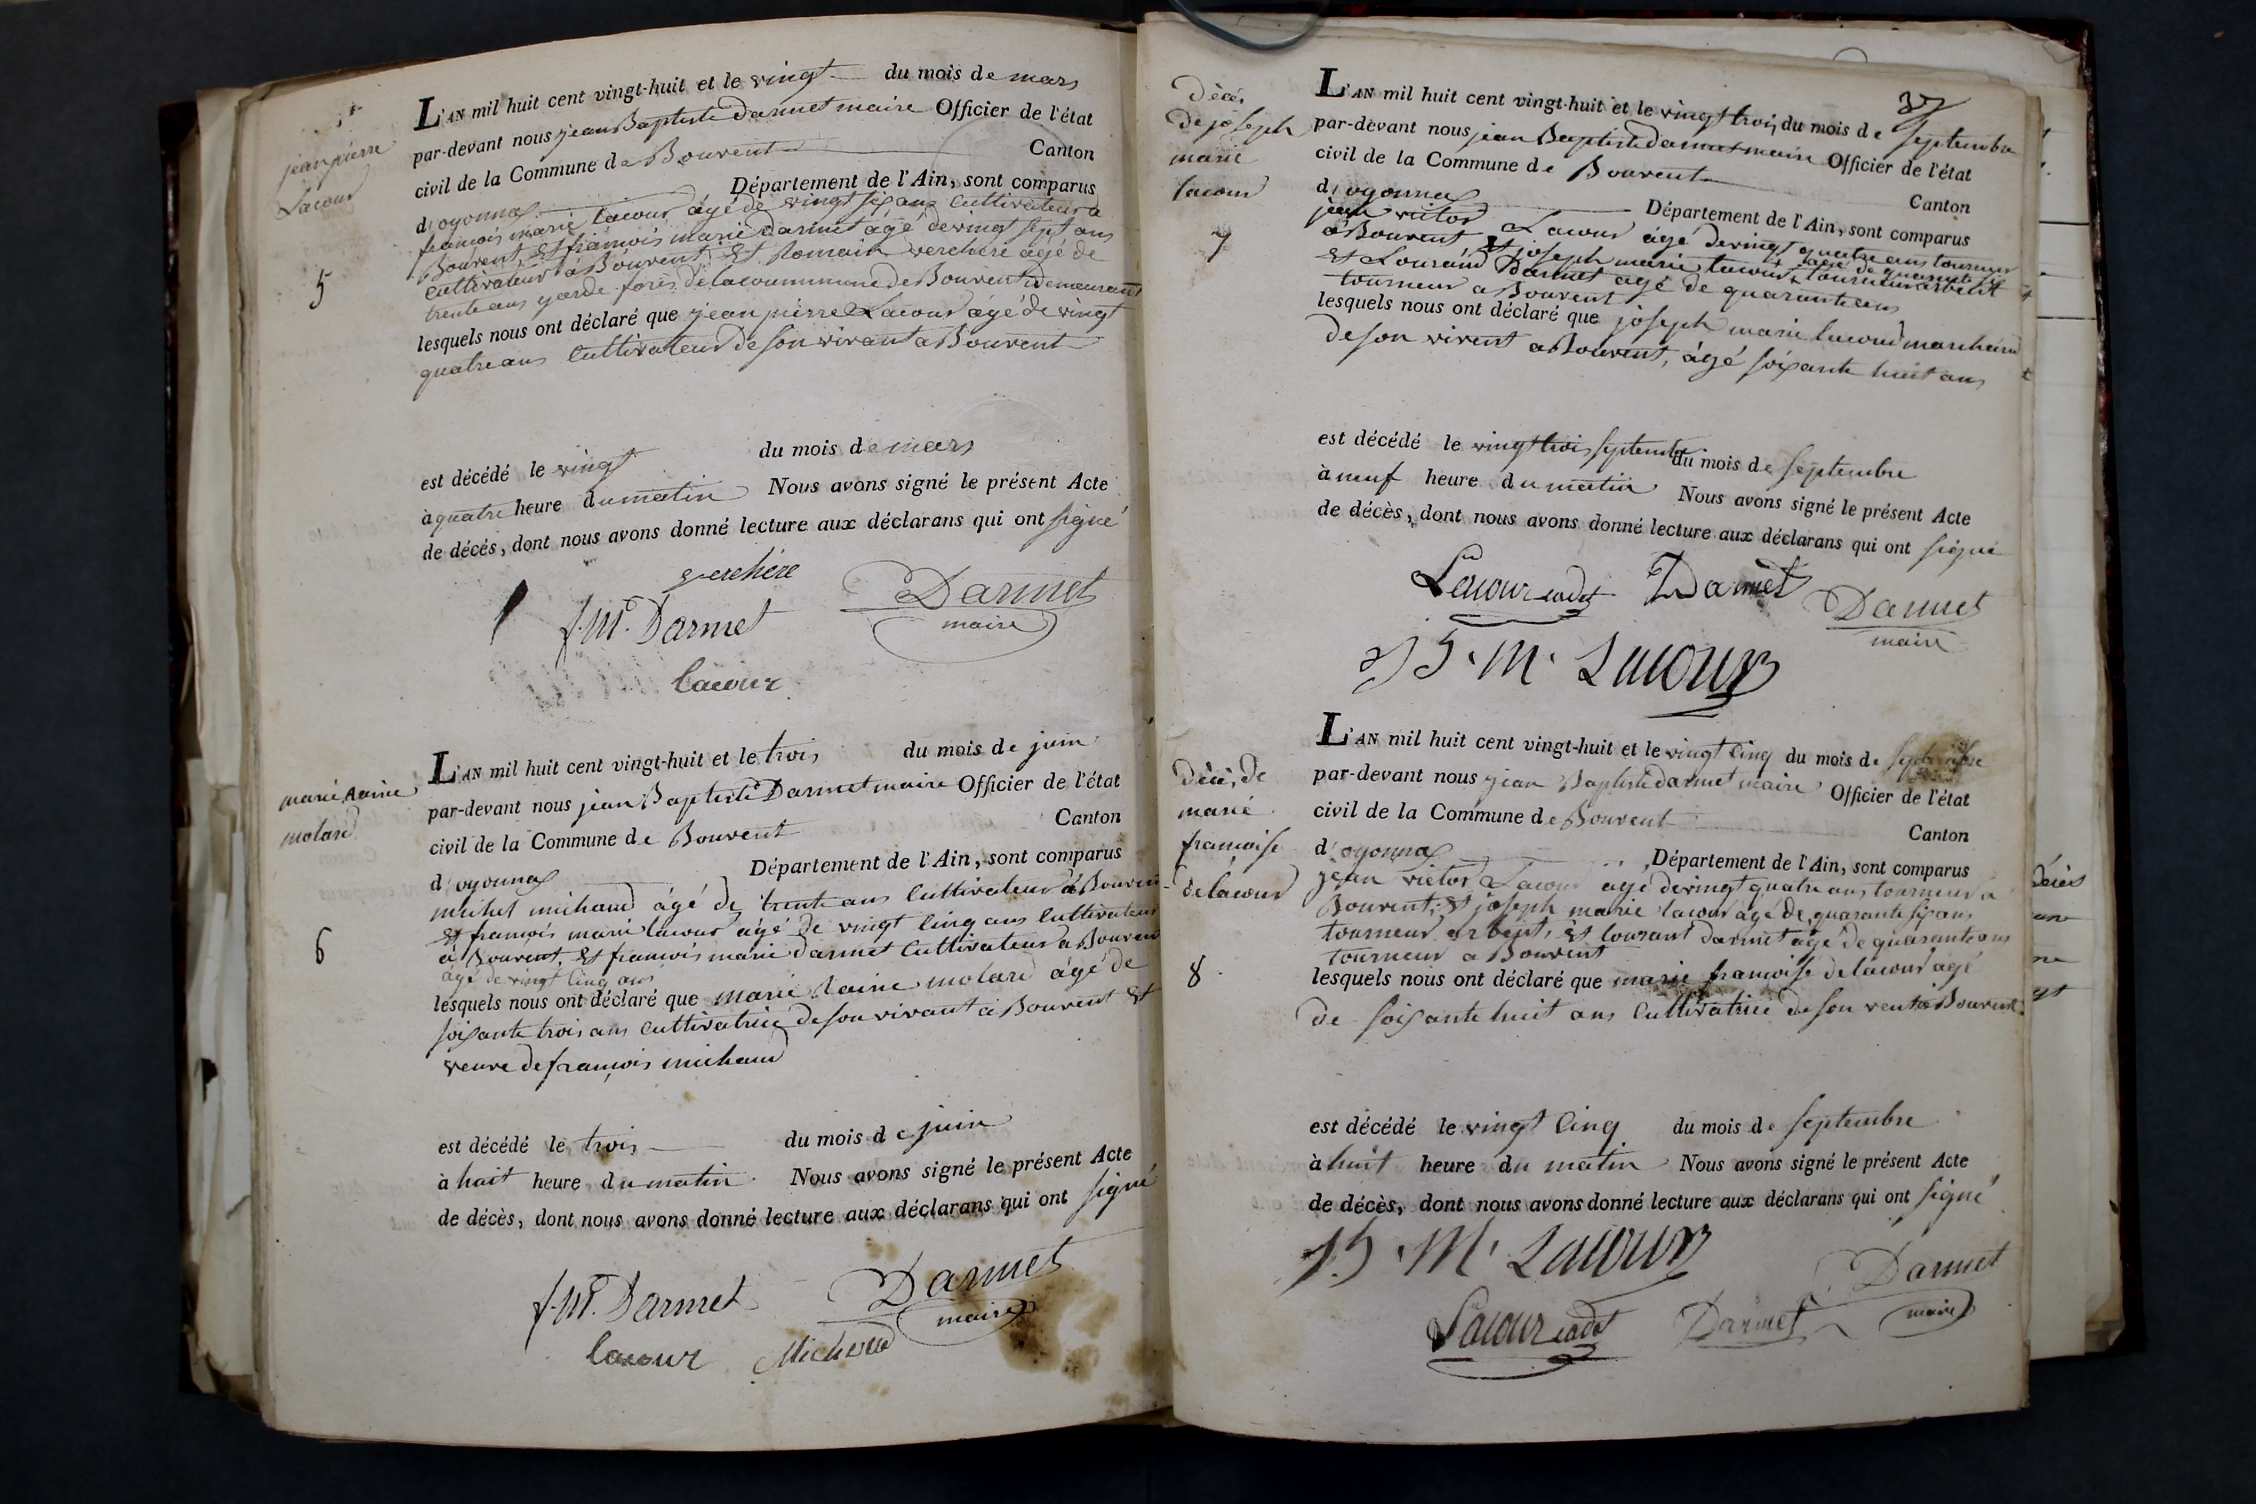 jean pierre
Lacour
5
L'AN mil huit cent vingt-huit et le vingt du mois de mars
par-devant nous jean Baptiste Darmet maire Officier de l'état
civil de la Commune de Bouvent Canton
d'oyonnax Département de l'Ain, sont comparus
francois marie lacour âgé de vingt six ans Cultivateur a
Bouvent, Et francois marie Darmet âgé de vingt sept ans
Cultivateur à Bouvent, Et Romain verchere âgé de
trente ans garde forêts de la commune de Bouvent y demeurant
lesquels nous ont déclaré que jean pierre Lacour âgé de vingt
quatre ans Cultivateur de son vivant a Bouvent
est décédé le vingt du mois de mars
à quatre heure du matin Nous avons signé le présent Acte
de décés, dont nous avons donné lecture aux déclarans qui ont signé
verchére
f. m. Darmet Darmet
maire
lacour
marie Raine
molard
6
L'AN mil huit cent vingt-huit et le trois du mois de juin
par-devant nous jean Baptiste Darmet maire Officier de l'état
civil de la Commune de Bouvent Canton
d'oyonnax Département de l'Ain, sont comparus
michel michaud âgé de trente ans Cultivateur à Bouvent
Et francois marie lacour âgé de vingt Cinq ans Cultivateur
à Bouvent, Et francois marie darmet Cultivateur a Bouvent
âgé de vingt Cinq ans
lesquels nous ont déclaré que marie Raine molard âgé de
soixante trois ans Cultivatrice de son vivant à Bouvent Et
veuve de francois michaud
est décédé le trois du mois de juin
à huit heure du matin Nous avons signé le présent Acte
de décès, dont nous avons donné lecture aux déclarans qui ont signé
f. m. Darmet Darmet
maire
lacour Michaud
37
décés
de joseph
marie
lacour
7
L'AN mil huit cent vingt-huit et le vingt trois du mois de septembre
par-devant nous jean Baptiste darmet maire Officier de l'état
civil de la Commune de Bouvent Canton
d'oyonnax Département de l'Ain, sont comparus
jean victor Lacour âgé de vingt quatre ans tourneur
à Bouvent Et joseph marie lacour âgé de quarante six tourneur arbent
Et Lourand Darmet age de quarante ans
tourneur a Bouvent
lesquels nous ont déclaré que joseph marie lacour marchand
de son vivent a Bouvent, âgé soixante huit ans
est décédé le vingt trois septembre du mois de septembre
à neuf heure du matin Nous avons signé le présent Acte
de décès, dont nous avons donné lecture aux déclarans qui ont signé
Lacour cadet Darmet Darmet
maire
J. M. Lacour
décés de
marie
francoise
delacour
8
L'AN mil huit cent vingt-huit et le vingt Cinq du mois de septembre
par-devant nous jean Baptiste darmet maire Officier de l'état
civil de la Commune de Bouvent Canton
d'oyonnax Département de l'Ain, sont comparus
jean victor Lacour agé de vingt quatre ans tourneur à
Bouvent, Et joseph marie lacour âgé de quarante six ans
tourneur arbent, Et lourant darmet âgé de quarante ans
tourneur a Bouvent
lesquels nous ont déclaré que marie francoise delacour agé
de soixante huit ans Cultivatrice de son vent a Bouvent
est décédé le vingt Cinq du mois de septembre
à huit heure du matin Nous avons signé le présent Acte
de décès, dont nous avons donné lecture aux déclarans qui ont signé
J. M. Lacour
Darmet
Lacour cadet Darmet maire